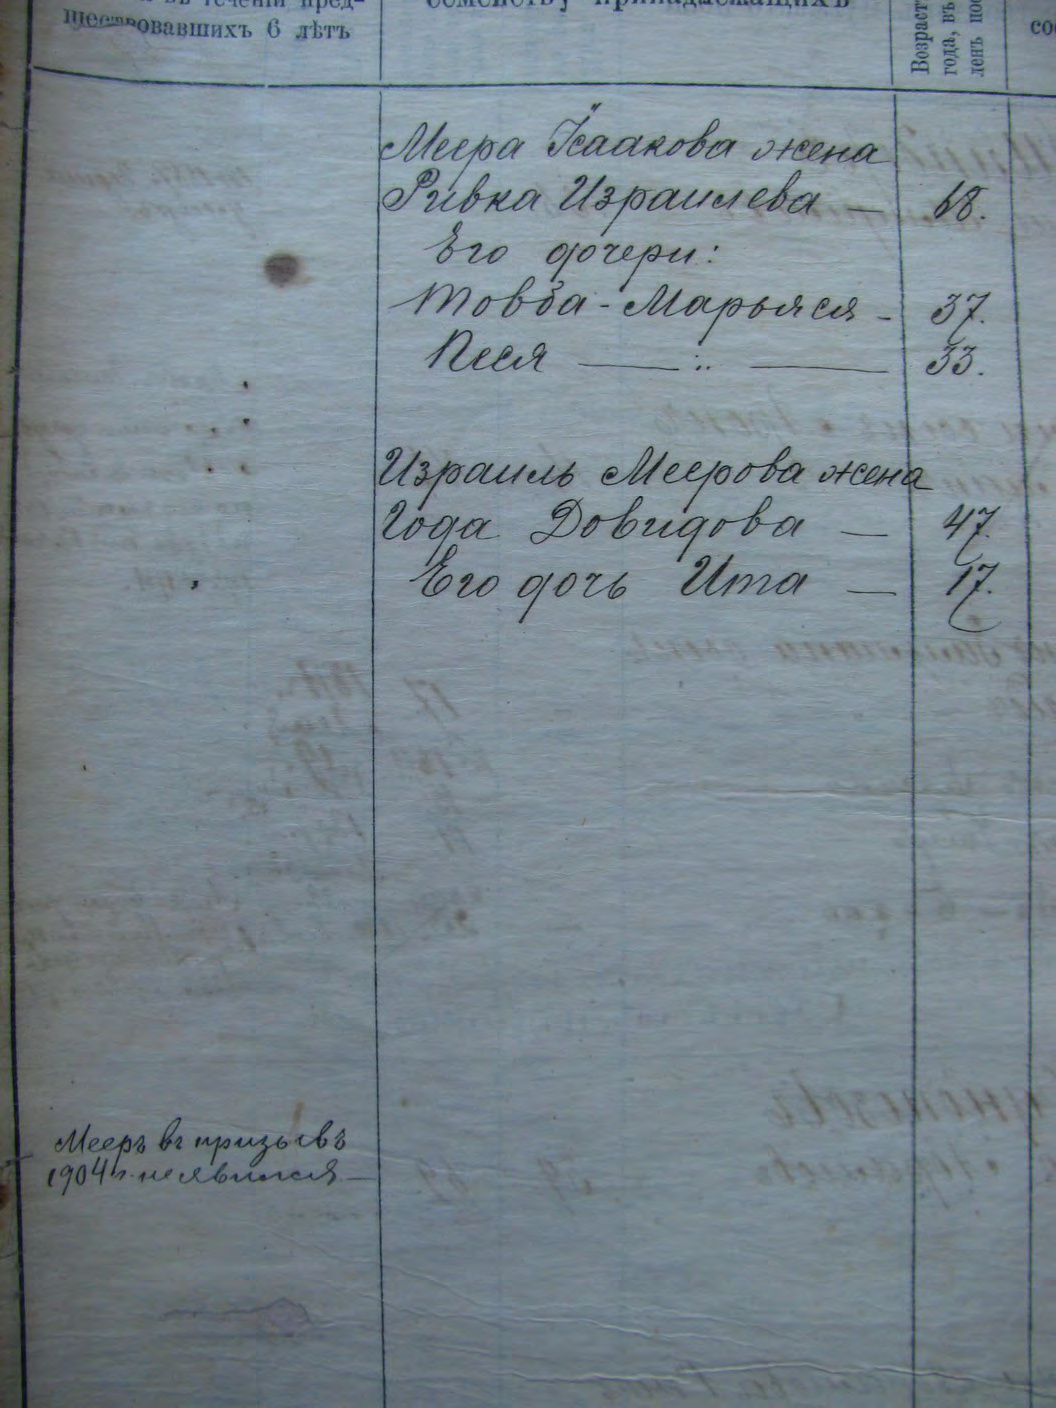 въ теченіи пред-
шествовавшихъ 6 лѣтъ
семейству принадлежащихъ
Возраст
года, въ
ленъ пос
Меера Ісаакова жена
Ривка Израилева — 68.
Его дочери:
Товба-Марьяся - 37.
Песя — „ — 33.
Израиль Меерова жена
Года Довидова — 47.
Его дочь Ита — 17.
Мееръ въ призывъ
1904 г. не явился —